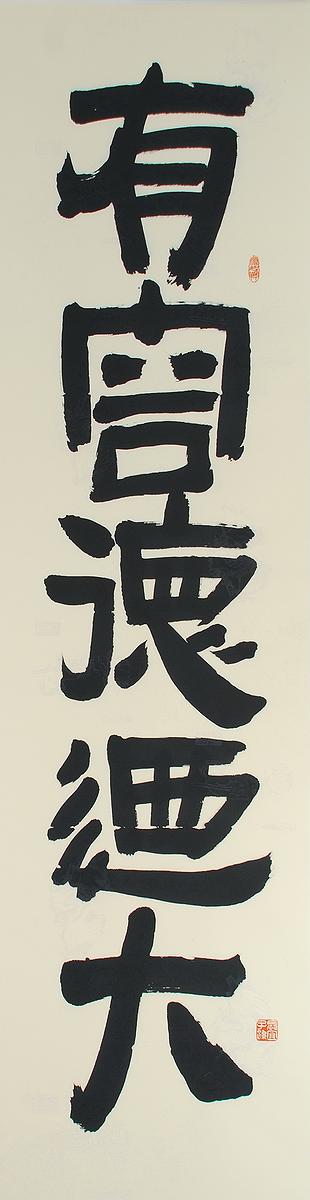 有容德迺大